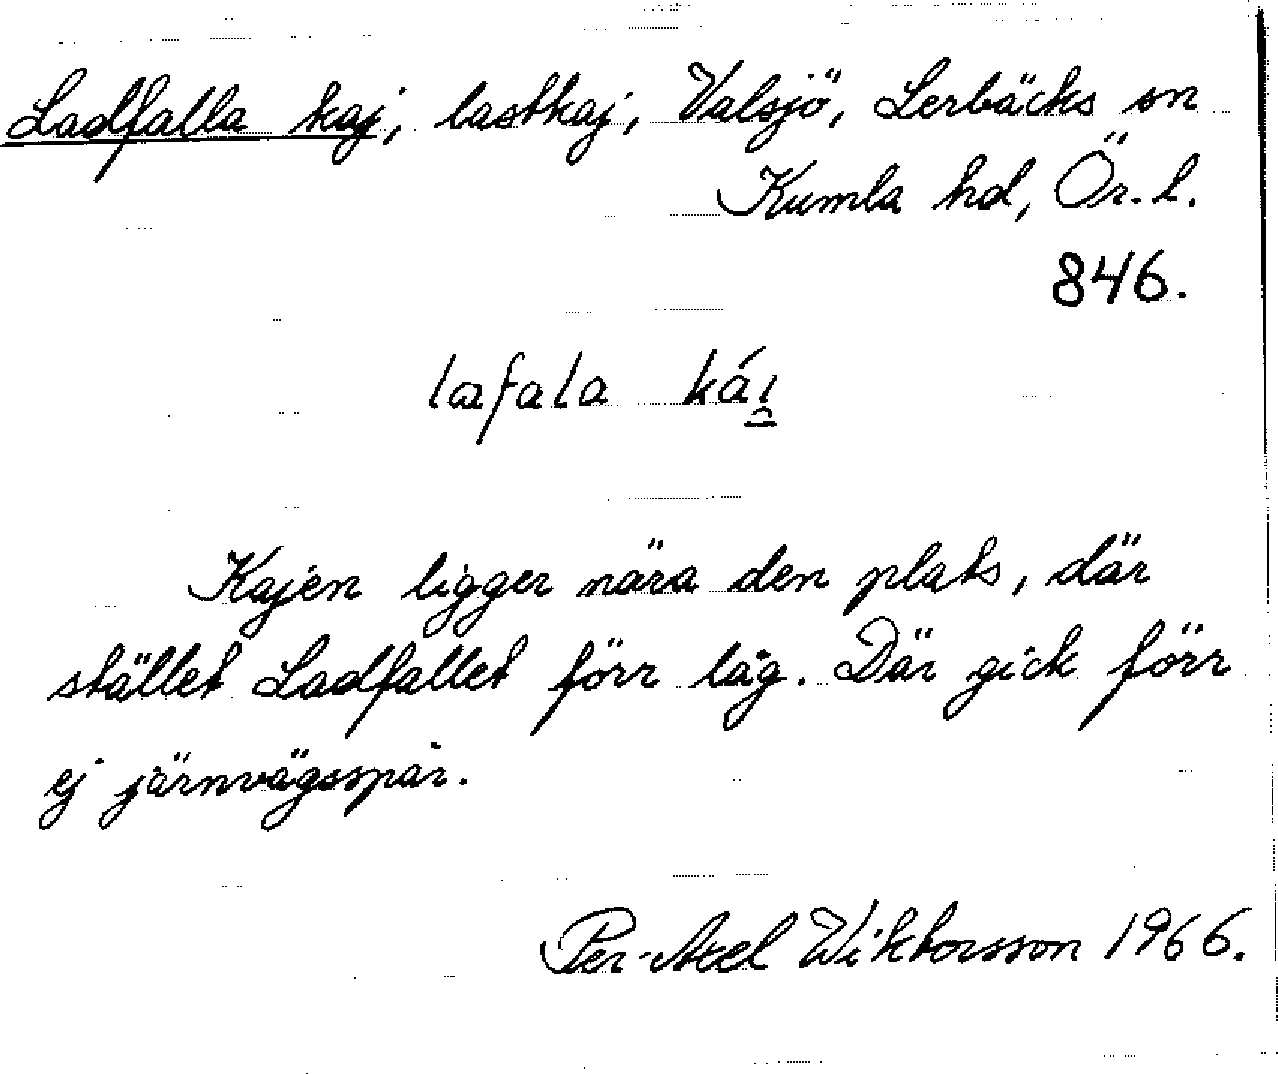 Ladfalla kaj, lastkaj, Valsjö, Lerbäcks sn
Kumla hd, Ör. l.
846.
lafala káı̯
Kajen ligger nära den plats, där
stället Ladfallet förr låg. Där gick förr
ej järnvägsspår.
Per-Axel Wiktorsson 1966.